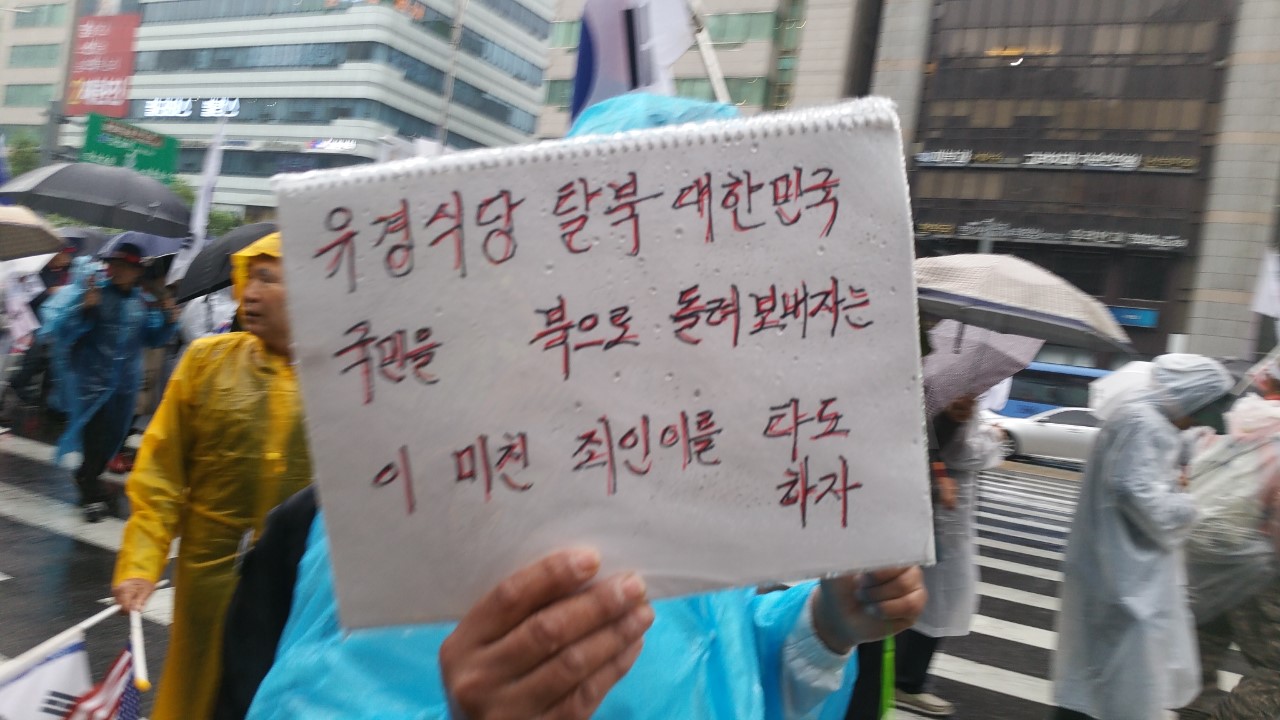 유경식당 탈북 대한민국
국민을 북으로 돌려보내자는
이 미친 죄인이를 타도
하자